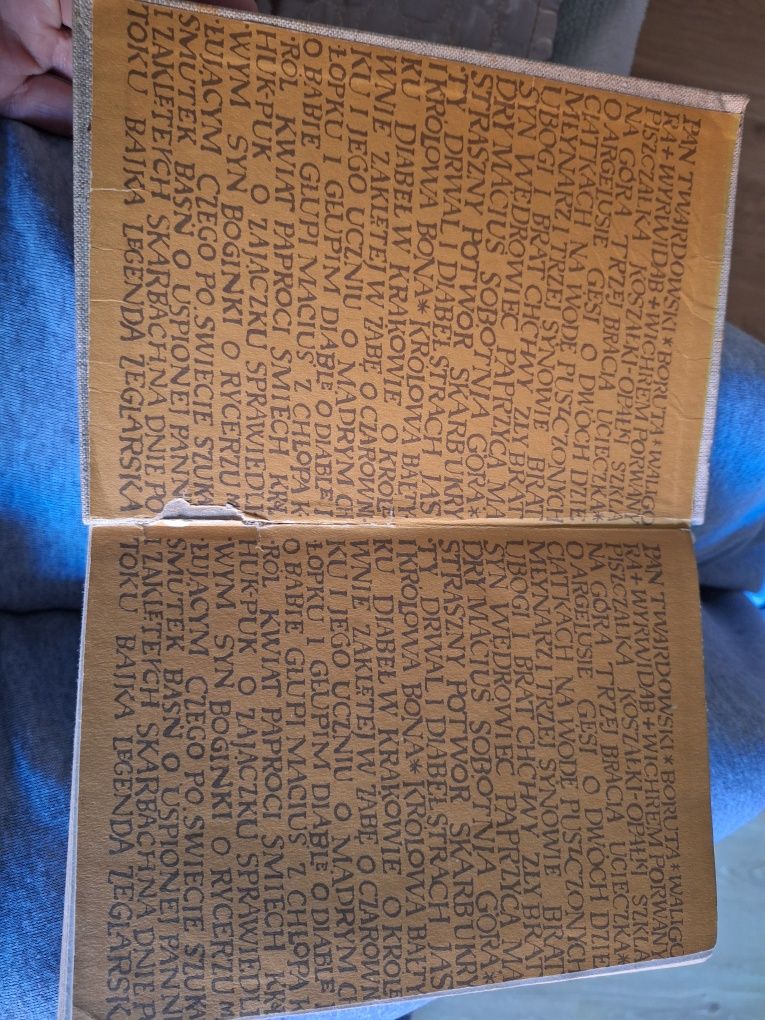 PAN TWARDOWSKI * BORUTA + WALIGÓ
RA + WYRWIDĄB + WICHREM PORWANY
PISZCZAŁKA KOSZAŁKI-OPAŁKI SZKLA
NA GÓRA TRZEJ BRACIA UCIECZKA *
O ARGELUSIE GĘSI O DWÓCH DZIE
CIĄTKACH NA WODĘ PUSZCZONYCH
MŁYNARZ I TRZEJ SYNOWIE BRAT
UBOGI I BRAT CHCIWY ZŁY BRAT
SYN WĘDROWIEC PAPRZYCA MĄ
DRY MACIUŚ SOBOTNIA GÓRA *
STRASZNY POTWÓR SKARB UKRY
TY DRWAL I DIABEŁ STRACH JAŚ
I KRÓLOWA BONA * KRÓLOWA BAŁTY
KU DIABEŁ W KRAKOWIE O KRÓLE
WNIE ZAKLĘTEJ W ŻABĘ O CZAROWN
KU I JEGO UCZNIU O MĄDRYM CH
ŁOPKU I GŁUPIM DIABLE O DIABLE I
O BABIE GŁUPI MACIUŚ Z CHŁOPA K
RÓL KWIAT PAPROCI ŚMIECH KRA
HUK-PUK O ZAJĄCZKU SPRAWIEDLI
WYM SYN BOGINKI O RYCERZU
ŁUJĄCYM CZEGO PO ŚWIECIE SZUKA
SMUTEK BAŚŃ O UŚPIONEJ PANN
I ZAKLĘTYCH SKARBACH NA DNIE PO
TOKU BAJKA LEGENDA ŻEGLARSKA
PAN TWARDOWSKI * BORUTA + WALIGÓ
RA + WYRWIDĄB + WICHREM PORWANY
PISZCZAŁKA KOSZAŁKI-OPAŁKI SZKLA
NA GÓRA TRZEJ BRACIA UCIECZKA *
O ARGELUSIE GĘSI O DWÓCH DZIE
CIĄTKACH NA WODĘ PUSZCZONYCH
MŁYNARZ I TRZEJ SYNOWIE BRAT
UBOGI I BRAT CHCIWY ZŁY BRAT
SYN WĘDROWIEC PAPRZYCA MĄ
DRY MACIUŚ SOBOTNIA GÓRA *
STRASZNY POTWÓR SKARB UKRY
TY DRWAL I DIABEŁ STRACH JAŚ
I KRÓLOWA BONA * KRÓLOWA BAŁTY
KU DIABEŁ W KRAKOWIE O KRÓL
WNIE ZAKLĘTEJ W ŻABĘ O CZAROWN
KU I JEGO UCZNIU O MĄDRYM C
ŁOPKU I GŁUPIM DIABLE O DIABLE I
O BABIE GŁUPI MACIUŚ Z CHŁOPA K
RÓL KWIAT PAPROCI ŚMIECH KRA
HUK-PUK O ZAJĄCZKU SPRAWIEDLI
WYM SYN BOGINKI O RYCERZU M
ŁUJĄCYM CZEGO PO ŚWIECIE SZUKA
SMUTEK BAŚŃ O UŚPIONEJ PANNI
I ZAKLĘTYCH SKARBACH NA DNIE P
TOKU BAJKA LEGENDA ŻEGLARSK